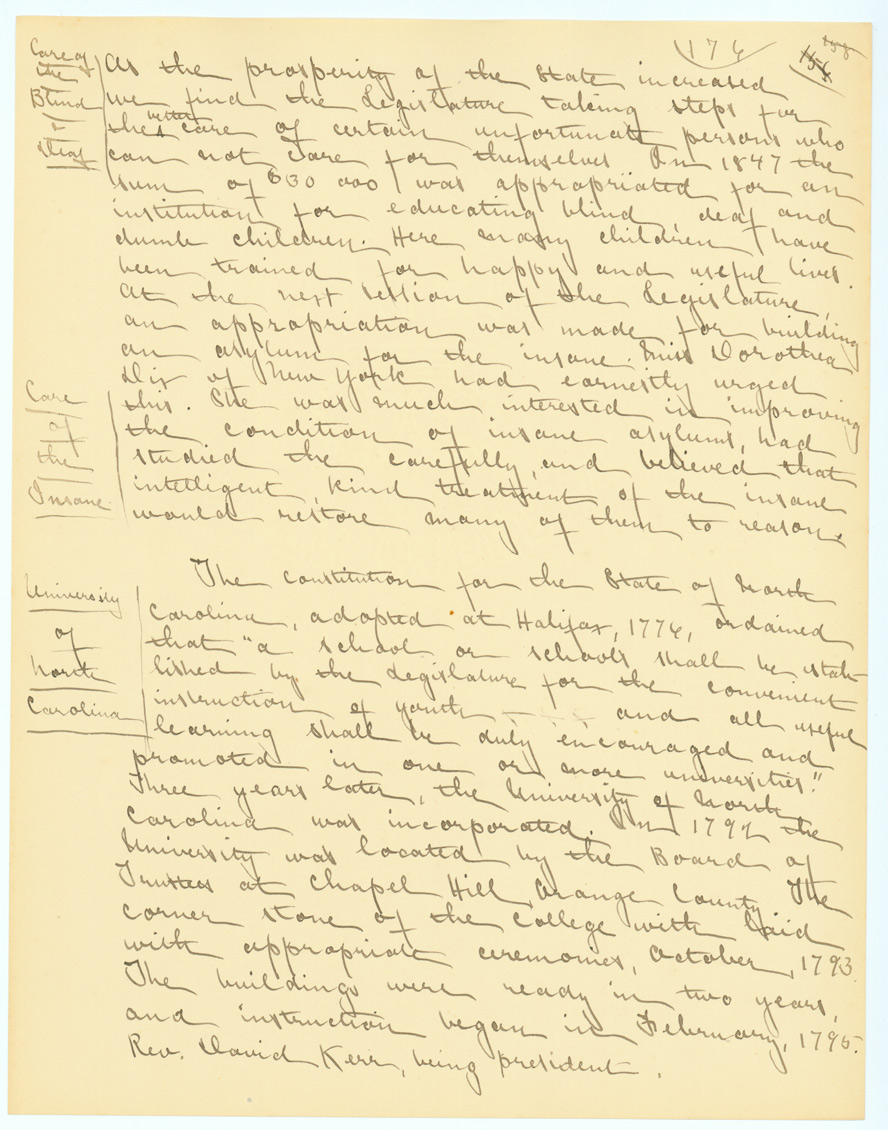 176
158
154
Care of
the
Blind
&
Deaf
As the prosperity of the State increased
we find the Legislature taking steps for
better
the care of certain unfortunate persons who
can not care for themselves In 1847 the
sum of 000 was appropriated for an
institution for educating blind deaf and
dumb children. Here many children have
been trained for happy and useful lives.
At the next session of the Legislature,
an appropriation was made for building
an asylum for the insane. Miss Dorothea
Dix of New York had earnestly urged
Care
of
the
Insane
this. She was much interested in improving
the condition of insane asylums, had
studied the carefully, and believed that
intelligent, kind treatment of the insane
would restore many of them to reason.
University
of
North
Carolina
The constitution for the State of North
Carolina, adopted at Halifax, 1776, ordained
that "a school or schools shall be estab-
lished by the Legislature for the convenient
instruction of youth - - - and all useful
learning shall be duly encouraged and
promoted in one or more universities."
Three years later, the University of North
Carolina was incorporated. In 1792 the
University was located by the Board of
Trustees at Chapel Hill, Orange County. The
corner stone of the college with laid
with appropriate ceremonies, October, 1793.
The buildings were ready in two years,
and instruction began in February, 1795.
Rev. David Kerr, being president.